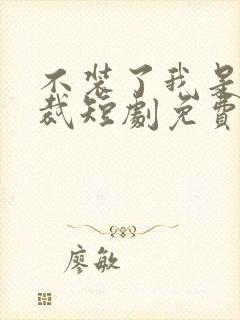 不装了我是
裁短劇免費
廖敏